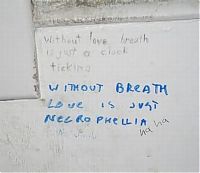 without love breath
is just a clock
ticking
WITHOUT BREATH
LOVE IS JUST
NECROPHELLIA
ha ha